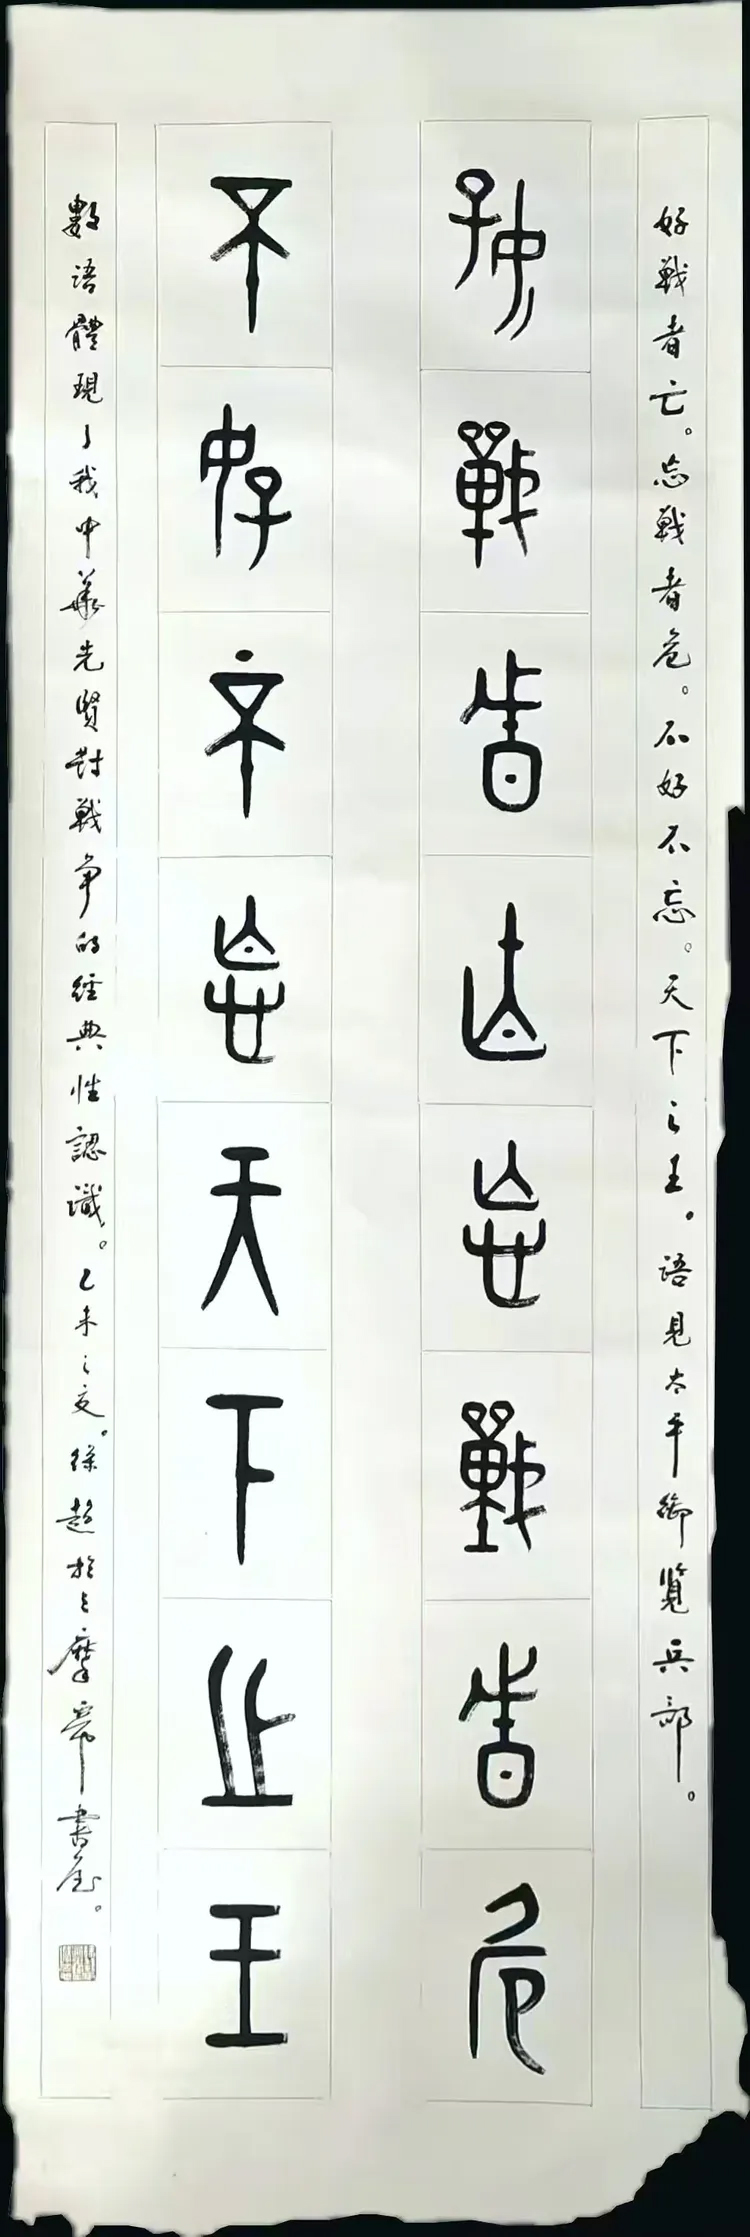 好戰者亡。忘戰者危。不好不忘。天下之王。語見太平御覽兵部。
好戰者亡忘戰者危
不好不忘天下之王
數語體現了我中華先賢對戰爭的經典性認識。乙未之夏。徐超於之摩希書屋。